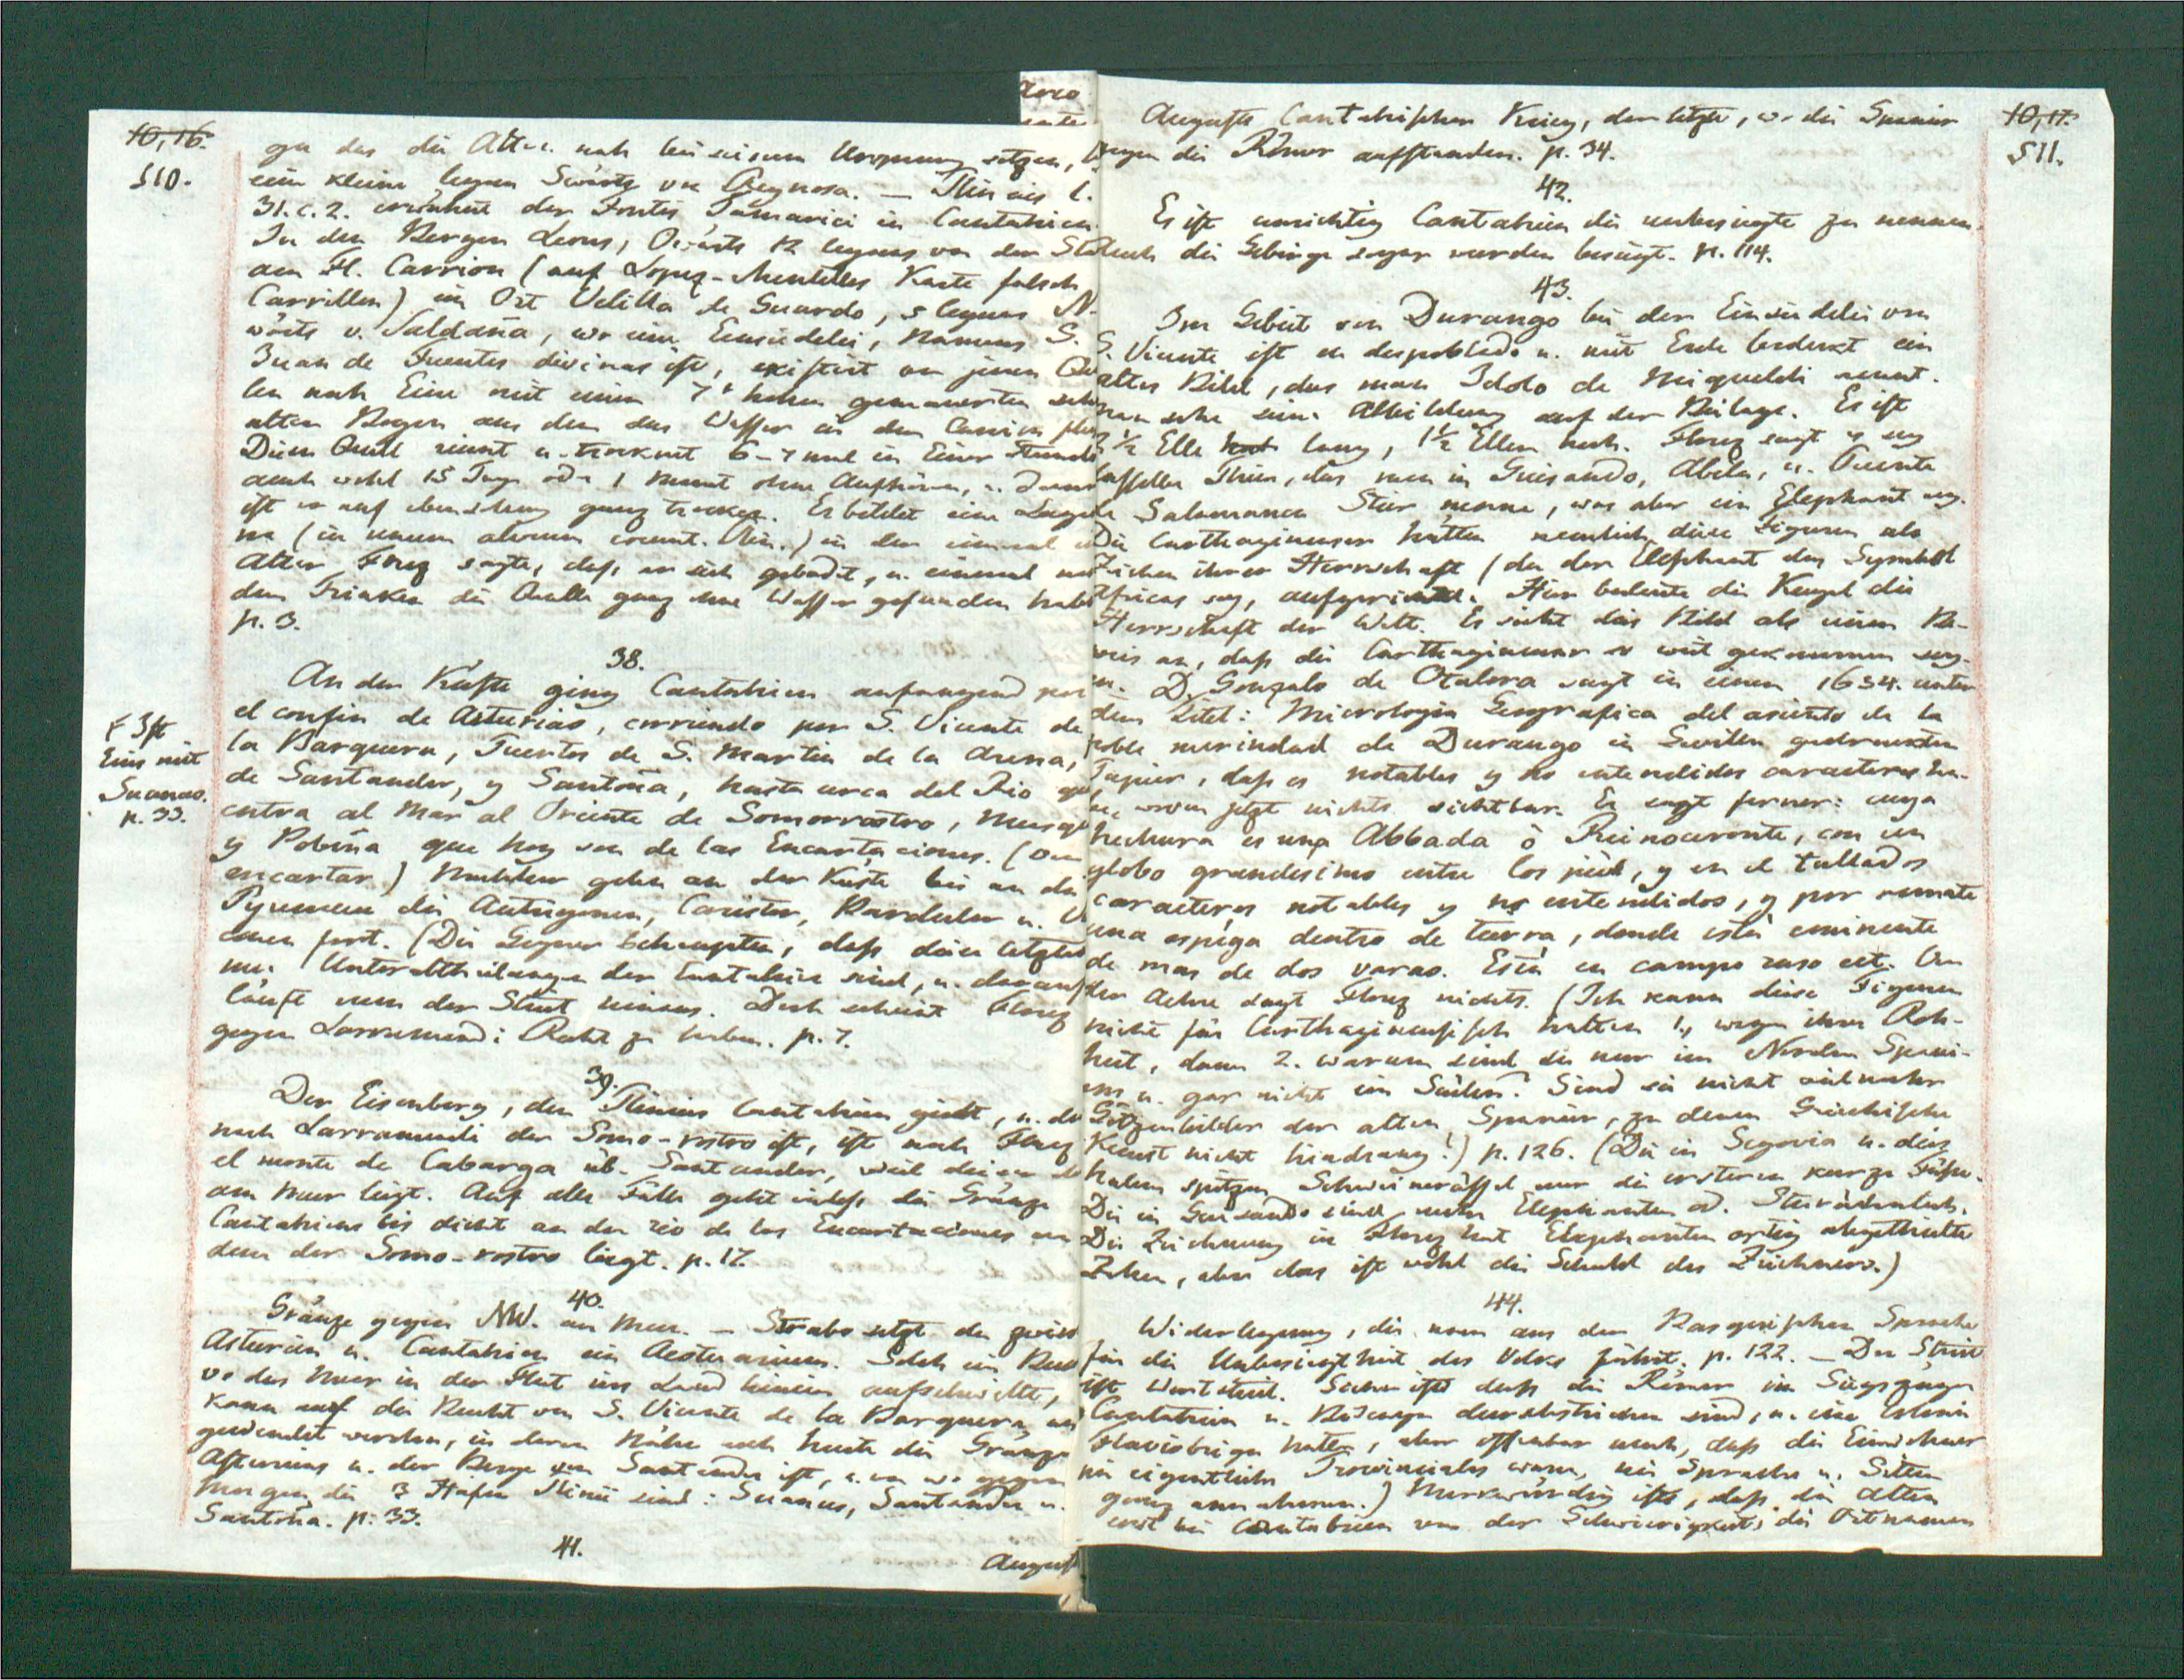 10,16.
510.
gen das die Alten nah bei seinem Ursprung setzen,
ein kleine leguas Swärts von Reynosa. — Plinius l.
31. c. 2. erwähnt der Fontes Tamarici in Cantabrien.
In den Bergen Leons, Owärts 12 leguas von der Sta
am Fl. Carrion (auf Lopez-Mentelles Karte falsch
Carrillon) im Ort Velilla de Guardo, 5 leguas N.
wärts v. Saldaña, wo eine Einsiedelei, Namens S.
Juan de Fuentes divinas ist, existirt von jenen Qu
len noch Eine mit einem 7' hohen gemauerten sehr
alten Bogen aus dem das Wasser in den Carrion flie
Diese Quell rinnt u. trocknet 6–7 mal in Einer Stunde
auch wohl 15 Tage oder 1 Monat ohne Aufhören, u. dann
ist er auf eben so lang ganz trocken. Er bildet eine Lagu
na (in unum alveum coeunt. Plin.) in der einmal
Alter Florez sagte, daß er sich gebadet, u. einmal
dem Trinken die Quelle ganz ohne Wasser gefunden habe
p. 3.
38.
An der Küste ging Cantabrien anfangend por
el confin de Asturias, corriendo por S. Vicente de
la Barquera, Puertos de S. Martin de la Arena,
de Santander, y Santoña, hasta cerca del Rio que
entra al Mar al Oriente de Somorrostro, Musqu
y Pobeña que hoy son de las Encartaciones. (von
encartar) Nachher gehen an der Küste bis an die
Pyrenaeen die Autrigonen, Carister, Barduler u. V
conen fort. (Die Gegner behaupten, daß diese letzten
nur Unterabtheilungen der Cantabrier sind, u. darauf
läuft nun der Streit hinaus. Doch scheint Florez
gegen Larramendi Recht zu haben. p. 7.
Ist
Eins mit
Suances.
p. 33.
39.
Der Eisenberg, den Plinius Cantabrien giebt, u. der
nach Larramendi der Somo-rostro ist, ist nach Florez
el monte de Cabarga üb. Santander, weil dieser
am Meer liegt. Auf alle Fälle geht indeß die Gränze
Cantabriens bis dicht an den rio de las Encartaciones an
dem der Somo-rostro liegt. p. 17.
40.
Gränze gegen NW. am Meer. — Strabo setzt den zwisc
Asturien u. Cantabrien ein Aestuarium. Solch ein
wo das Meer in der Flut ins Land hinein aufschwillt,
kann auf die Bucht von S. Vicente de la Barquera an
gewendet werden, in deren Nähe auch heute die Gränze
Asturiens u. der Berge von Santander ist, u. von wo gegen
Morgen die 3 Häfen Plinii sind: Suances, Santander u.
Santoña. p. 33.
41.
August
10,17.
511.
Augusts Cantabrischer Krieg, der letzte, wo die Spanier
gegen die Römer aufstanden. p. 34.
42.
Es ist unrichtig Cantabrien die unbesiegte zu nennen.
Auch die Gebirge sogar wurden besiegt. p. 114.
43.
Im Gebiet von Durango bei der Einsiedelei von
S. Vicente ist en despoblado u. mit Erde bedeckt ein
altes Bild, das man Idolo de Miqueldi nennt.
Man sehe seine Abbildung auf der Beilage. Es ist
2 1/2 Elle lang, 1 1/2 Ellen hoch. Florez sagt es sey
dasselbe Thier, das man in Guisando, Abila, u. Puente
de Salamanca Stier nenne, was aber ein Elephant sey.
Die Carthaginenser hätten nemlich diese Figuren als
Zeichen ihrer Herrschaft (da der Elephant das Symbol
Africas sey, aufgerichtet. Hier bedeute die Kugel die
Herrschaft der Welt. Es sieht dies Bild als einen Be-
weis an, daß die Carthaginenser so weit gekommen sey-
en. D. Gonzalo de Otalora sagt in einem 1634. unter
dem Titel: Micrologia Geografica del asiento de la
noble merindad de Durango in Sevilla gedruckten
Papier, daß es notables y no entendidos caracteres ha-
be, wovon jetzt nichts sichtbar. Er sagt ferner: cuya
hechura es una Abbada ò Reinoceronte, con un
globo grandisimo entre los piés, y en el tallados
caracteres notables y no entendidos, y por remate
una espiga dentro de tierra, donde está eminente
de mas de dos varas. Está en campo raso ect. Von
der Aehre sagt Florez nichts. (Ich kann diese Figuren
nicht für Carthaginensisch halten 1., wegen ihrer Roh-
heit, dann 2. warum sind sie nur im Norden Spani-
ens u. gar nicht im Süden? Sind sie nicht vielmehr
Götzenbilder der alten Spanier, zu denen Griechische
Kunst nicht hindrang?) p. 126. (Die in Segovia u. dies
haben spitzen Schweinerüssel nur die ersteren kurze Füße.
Die in Guisando sind mehr Elephanten od. Stierähnlich.
Die Zeichnung in Florez hat Elephanten artig abgetheilte
Zehen, aber das ist wohl die Schuld des Zeichners.)
44.
Widerlegung, die man aus der Basquischen Sprache
für die Unbesiegtheit des Volks führt. p. 122. — Der Streit
ist Wortstreit. Sicher ists daß die Römer im Siegszuge
Cantabrien u. Biscaya durchstrichen sind, u. eine Colonie
Flaviobriga hatten, aber offenbar auch, daß die Einwohner
nie eigentliche Provinciales waren, nie Sprache u. Sitten
ganz annahmen.) Merkwürdig ists, daß die Alten
erst bei Cantabrien von der Schwierigkeit, die Ortnamen